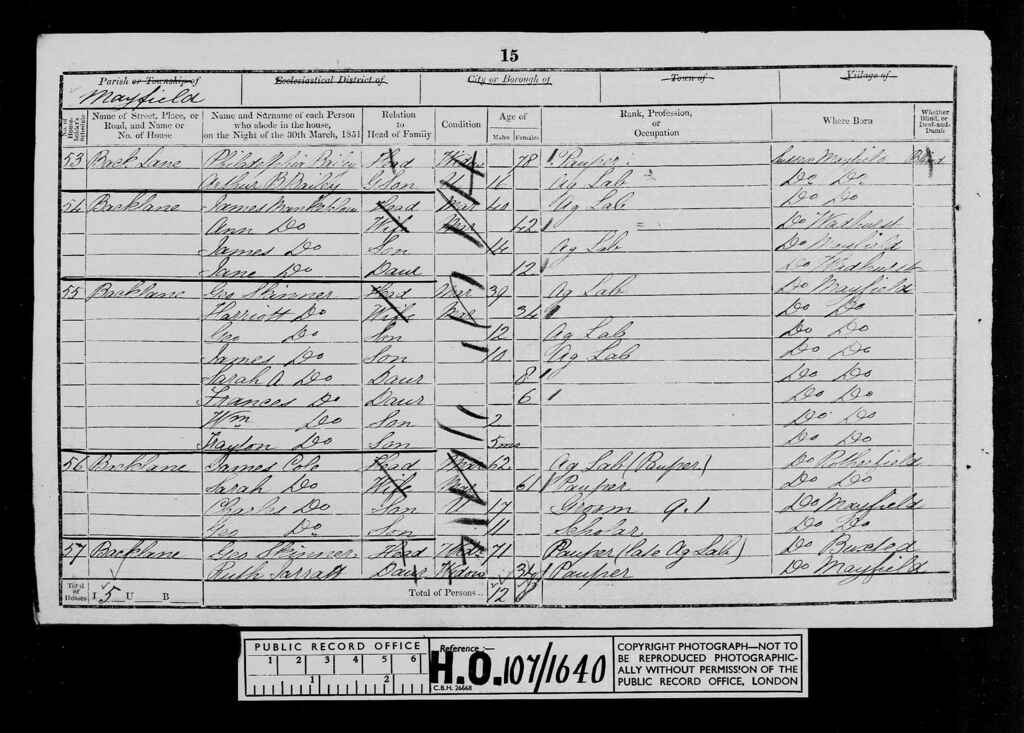 15
Parish or Township of Ecclesiastical District of City or Borough of Town of Village of
Mayfield
Name of Street, Place, or Road, and Name or No. of House
Name and Surname of each Person who abode in the house, on the Night of the 30th March, 1851
Relation to Head of Family
Condition
Age of
Males Females
Rank, Profession, or Occupation
Where Born
Whether Blind, or Deaf-and-Dumb
53 Back Lane Head Widow 78 Pauper Sussex Mayfield Blind
Arthur B Baily G Son U 16 Ag Lab Do Do
54 Backlane James Head Mar 40 Ag Lab Do Do
Ann Do Wife Mar 42 Do Wadhurst
James Do Son 14 Ag Lab Do Mayfield
Jane Do Daur 12 Do Wadhurst
55 Backlane Geo Skinner Head Mar 39 Ag Lab Do Mayfield
Harriott Do Wife Mar 34 Do Do
Geo Do Son 12 Ag Lab Do Do
James Do Son 10 Ag Lab Do Do
Sarah A Do Daur 8 Do Do
Frances Do Daur 6 Do Do
Wm Do Son 2 Do Do
Do Son 5mo Do Do
56 Backlane James Cole Head Mar 62 Ag Lab (Pauper) Do Rotherfield
Sarah Do Wife Mar 61 Pauper Do Do
Charles Do Son U 17 Groom Do Mayfield
Geo Do Son 11 Scholar Do Do
57 Backlane Geo Skinner Head Widr 71 Pauper (late Ag Lab) Do Buxted
Ruth Jarratt Daur Widow Pauper Do Mayfield
Total of Houses I 5 U B Total of Persons 12
PUBLIC RECORD OFFICE
1 2 3 4 5 6
1 2
Reference :-
H.O. 107/1640
C.B.H. 26668
COPYRIGHT PHOTOGRAPH—NOT TO
BE REPRODUCED PHOTOGRAPHIC-
ALLY WITHOUT PERMISSION OF THE
PUBLIC RECORD OFFICE, LONDON